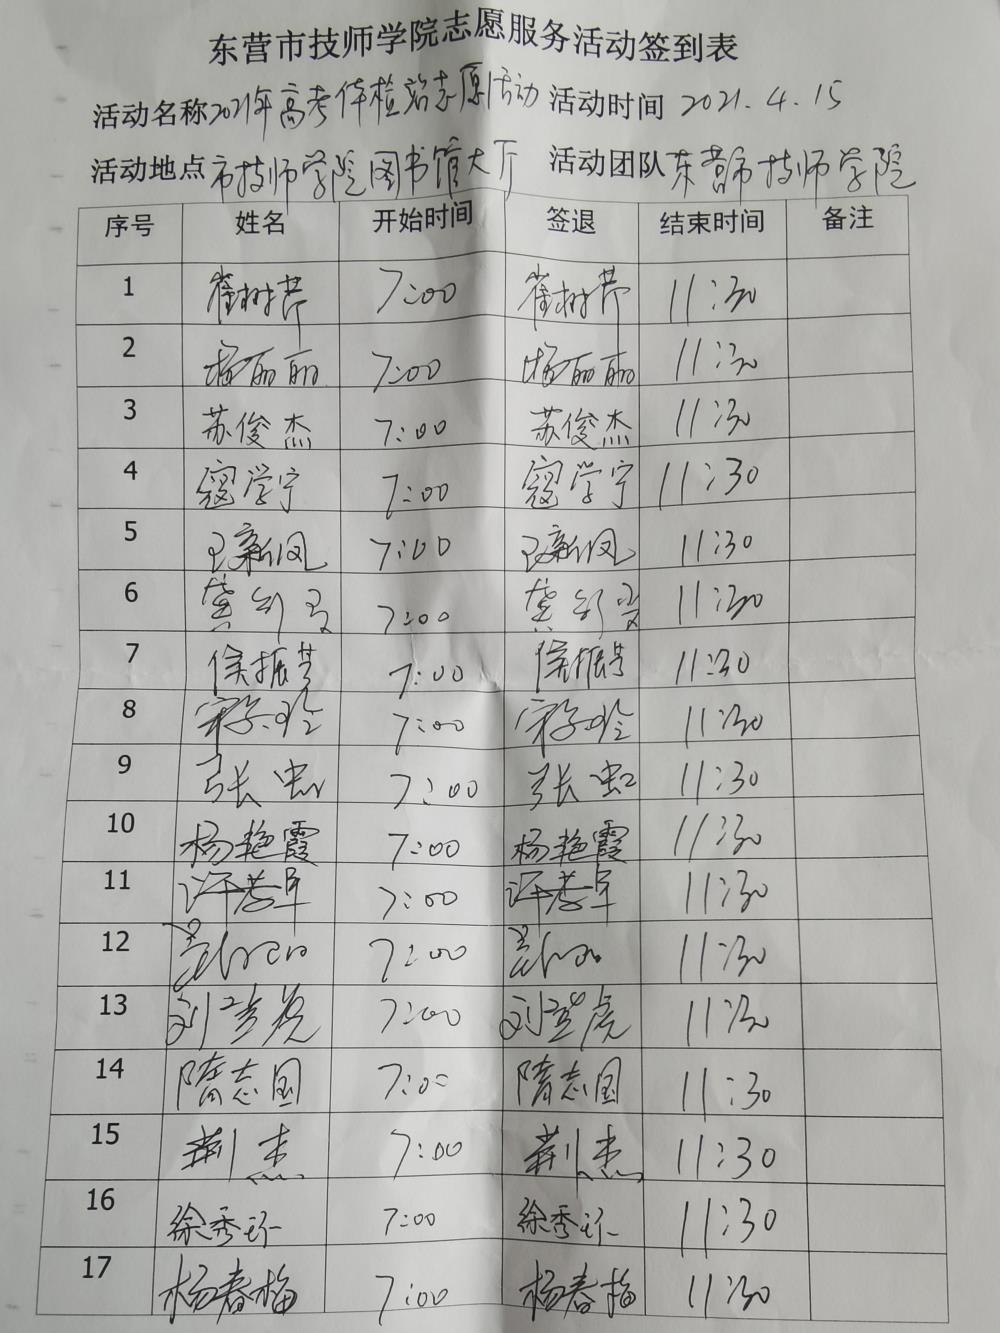 东营市技师学院志愿服务活动签到表
活动名称 2021年高考体检站志愿活动 活动时间 2021.4.15
活动地点 市技师学院图书馆大厅 活动团队 东营市技师学院
序号 姓名 开始时间 签退 结束时间 备注
1 崔树芹 7:00 崔树芹 11:30
2 杨丽丽 7:00 杨丽丽 11:30
3 苏俊杰 7:00 苏俊杰 11:30
4 寇学宁 7:00 寇学宁 11:30
5 王新凤 7:00 王新凤 11:30
6 龚 7:00 龚 11:30
7 侯振芳 7:00 侯振芳 11:30
8 宋 玲 7:00 宋 玲 11:30
9 张虹 7:00 张虹 11:30
10 杨艳霞 7:00 杨艳霞 11:30
11 许孝卓 7:00 许孝卓 11:30
12 7:00 11:30
13 刘 虎 7:00 刘 虎 11:30
14 隋志国 7:00 隋志国 11:30
15 荆杰 7:00 荆杰 11:30
16 徐秀 7:00 徐秀 11:30
17 杨春梅 7:00 杨春梅 11:30